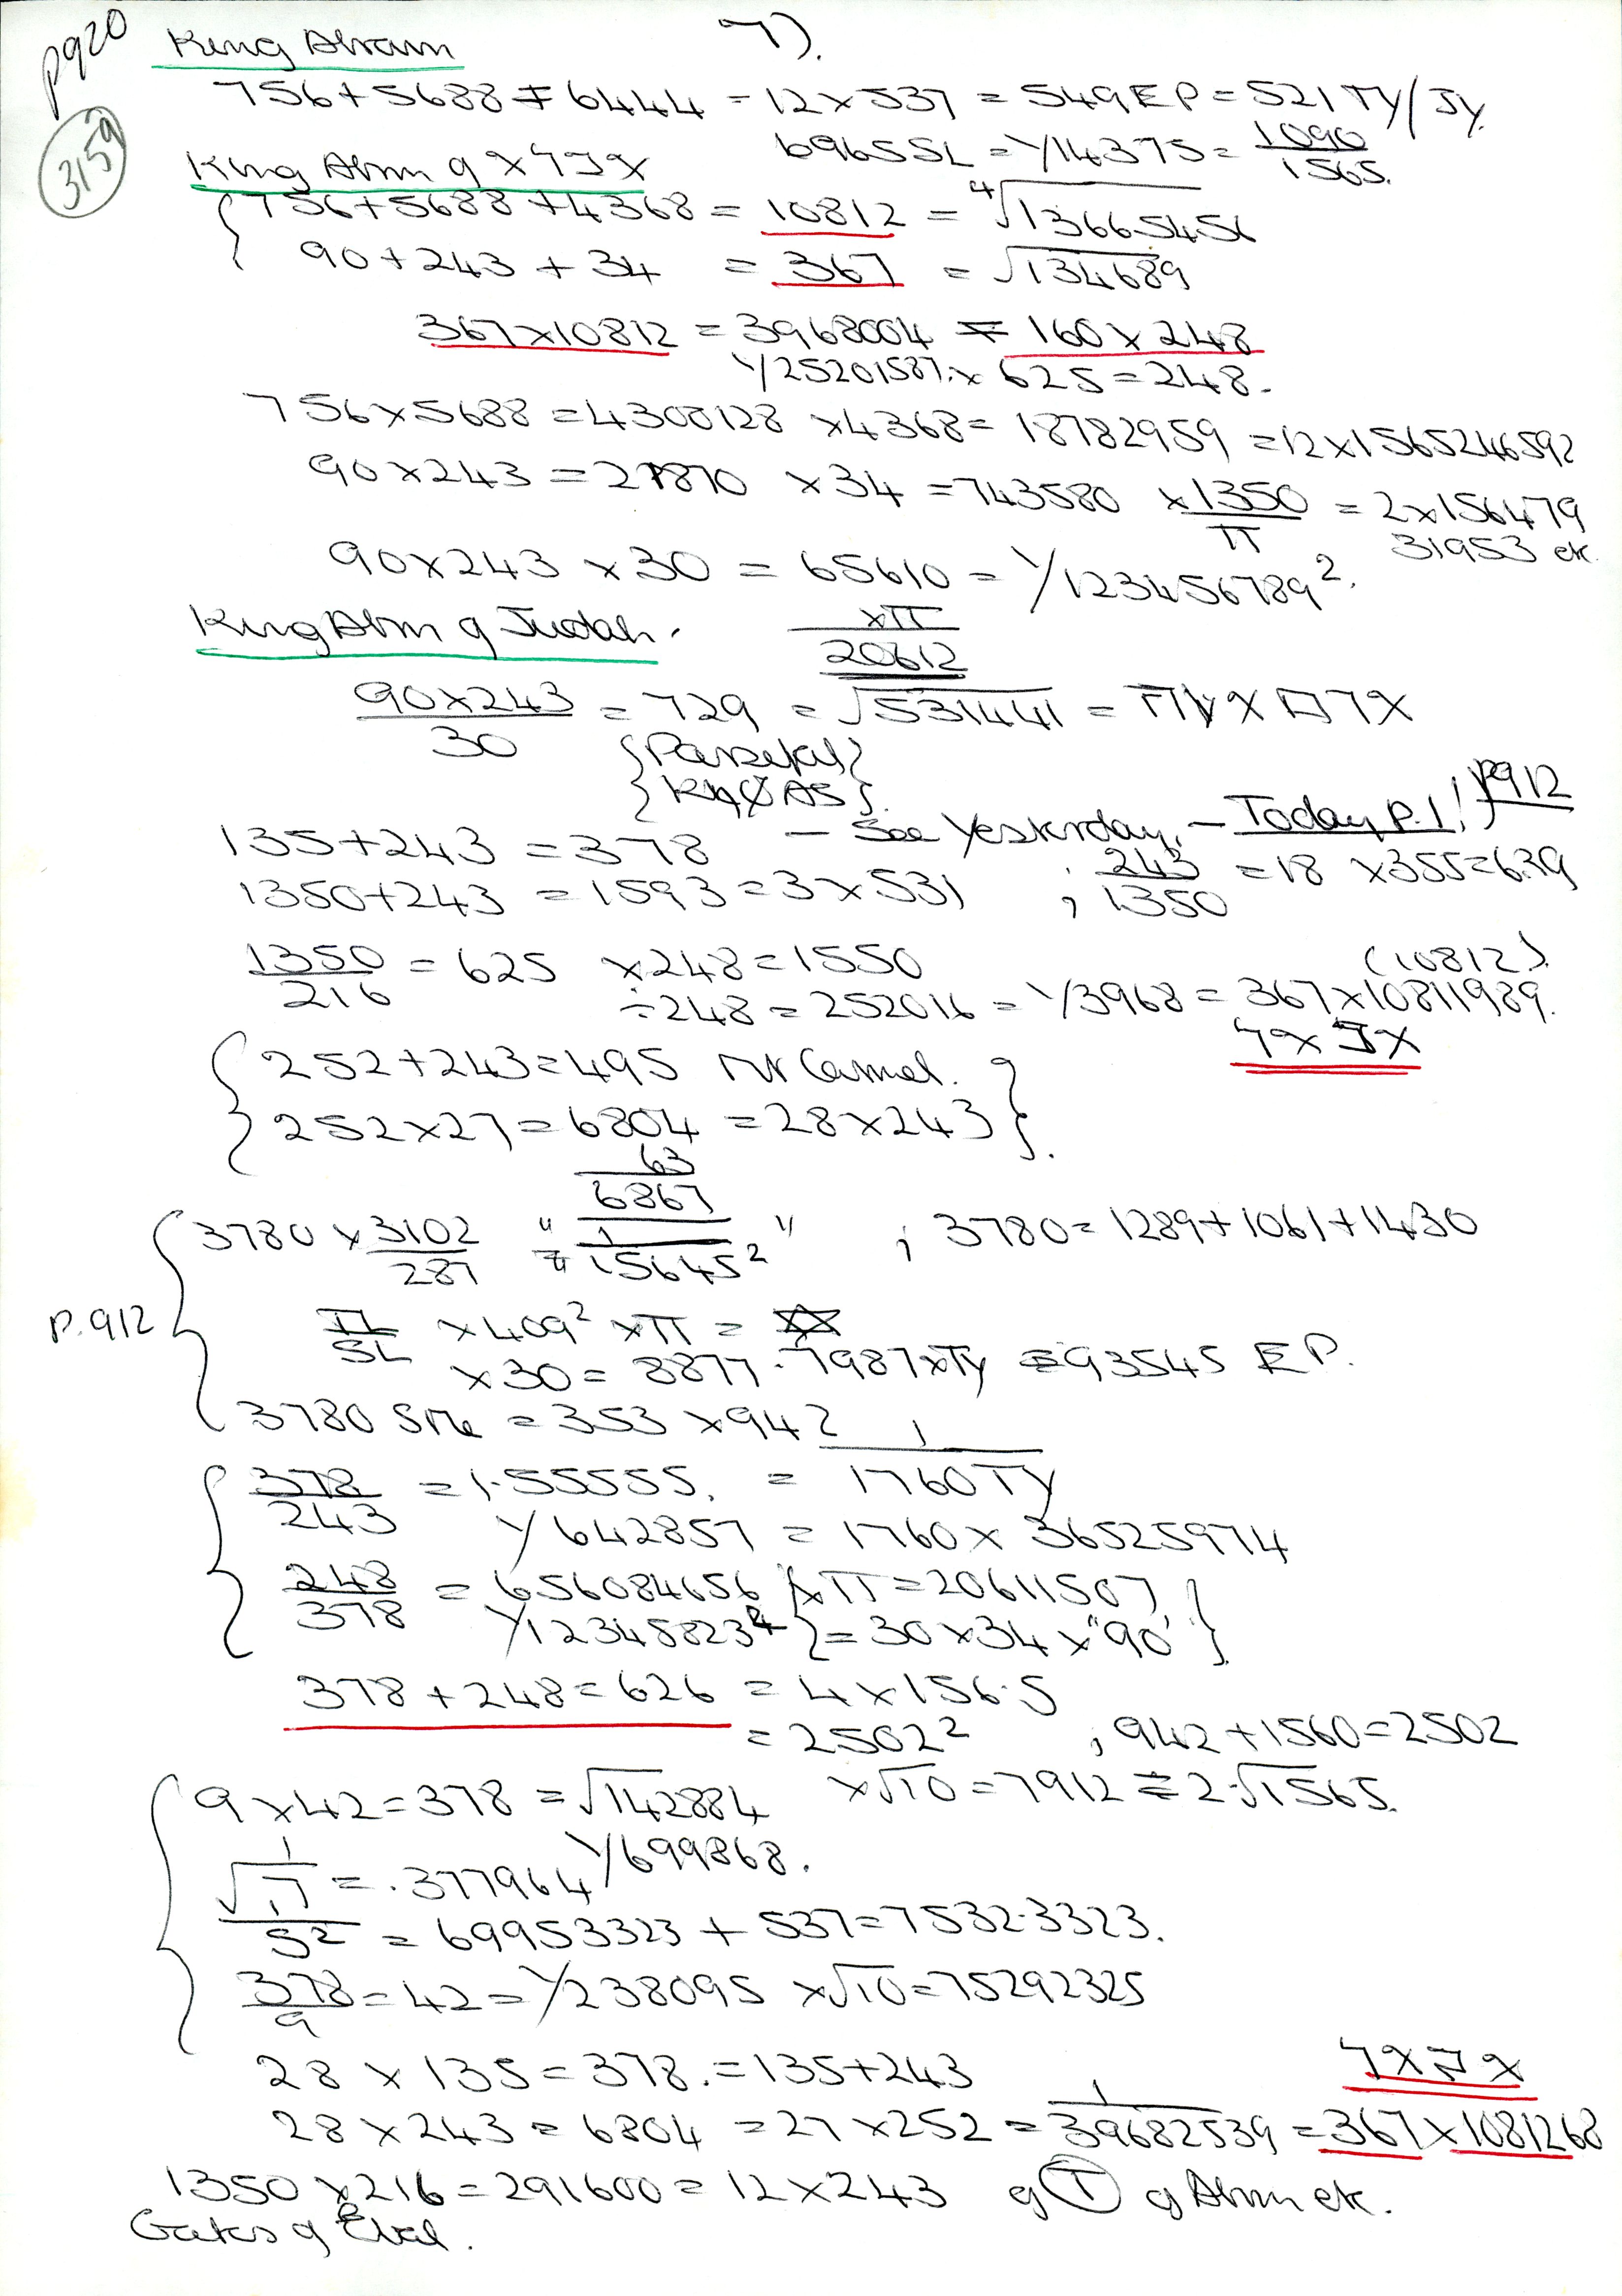 7).
p920
3159
King Abram
756+5688 = 6444 = 12×537 = 549 EP = 521 TY/JY.
6965 SL = 1/14375 = 1090/1565.
756+5688+4368 = 10812 = ∜13665456
90+243+34 = 367 = √134689
367×10812 = 3968004 = 160×248
1/25201587. × 625 = 248.
756×5688 = 4300128 ×4368 = 18782959 = 12×1565246592
90×243 = 21870 ×34 = 743580 × 1350/π = 2×156479
31953 etc.
90×243×30 = 65610 = 1/123456789².
×π
20612
King Abm of Judah.
90×243/30 = 729 = √531441
{Parsefal}
135+243 = 378 – See Yesterday, – Today P.1.! p912
1350+243 = 1593 = 3×531 , 243/1350 = 18 ×355=639
1350/216 = 625 ×248=1550
(10812).
÷248 = 252016 = 1/3968 = 367×10811989.
{252+243=495 Mt Carmel.
252×27=6804 = 28×243}.
63
6867
P.912
3780 × 3102/287 "= 1/15645²" , 3780=1289+1061+1430
TL/SL ×409² ×π = ✡
×30 = 8877.7987×TY = 93545 EP.
3780 SMe = 353×942
378/243 = 1.55555. = 1/1760TY
1/642857 = 1760×36525974
248/378 = 656084656 ×π=20611507
1/12345823⁴ = 30×34×"90"
378+248=626 = 4×156.5
= 2502² , 942+1560=2502
9×42=378 = √142884 ×√10=7912 = 2.√1565.
1/699868.
1/√.7 = .377964
/52 = 69953323 + 537=7532.3323.
378/9 = 42 = 1/238095 ×√10=75292325
28×135=378.=135+243
28×243=6804 = 27×252 = 1/39682539 = 367×1081268
1350×216=291600=12×243 of T of Abm etc.
Gates of Ebal.